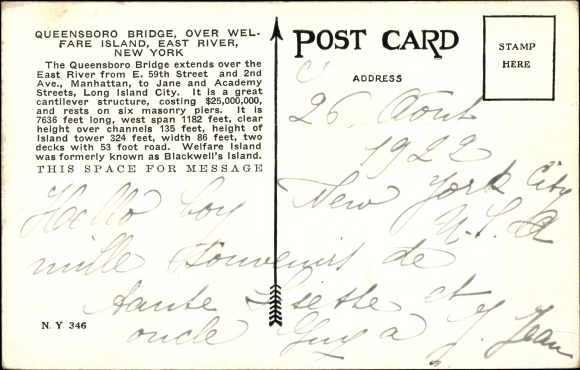 QUEENSBORO BRIDGE, OVER WEL-
FARE ISLAND, EAST RIVER,
NEW YORK
The Queensboro Bridge extends over the
East River from E. 59th Street and 2nd
Ave., Manhattan, to Jane and Academy
Streets, Long Island City. It is a great
cantilever structure, costing $25,000,000,
and rests on six masonry piers. It is
7636 feet long, west span 1182 feet, clear
height over channels 135 feet, height of
Island tower 324 feet, width 86 feet, two
decks with 53 foot road. Welfare Island
was formerly known as Blackwell's Island.
THIS SPACE FOR MESSAGE
POST CARD
ADDRESS
STAMP
HERE
26 Aout
1922
New York City
U.S.A
Hello boy
mille Souvenirs de
tante Lisette et
oncle Guy a J. Jean
N. Y. 346